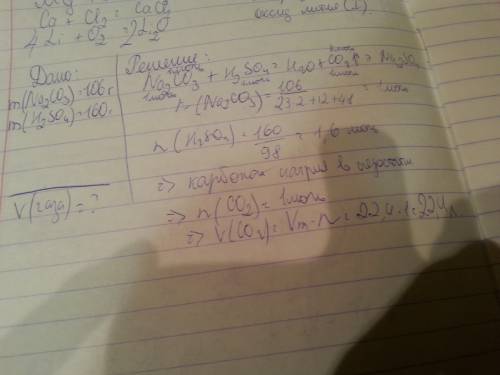 Ca + Cl₂ = CaCl₂
оксид лития (I).
4Li + O₂ = 2Li₂O
Дано:
m(Na₂CO₃) = 106 г
m(H₂SO₄) = 160 г
V(газа) = ?
Решение:
1моль 1моль 1моль
Na₂CO₃ + H₂SO₄ = H₂O + CO₂↑ + Na₂SO₄
1моль 1моль 1моль
n(Na₂CO₃) = 106 / 23·2+12+48 = 1 моль
n(H₂SO₄) = 160 / 98 = 1,6 моль
=> карбонат натрия в недостатке
=> n(CO₂) = 1 моль
=> V(CO₂) = Vm · n = 22,4 · 1 = 22,4 л.